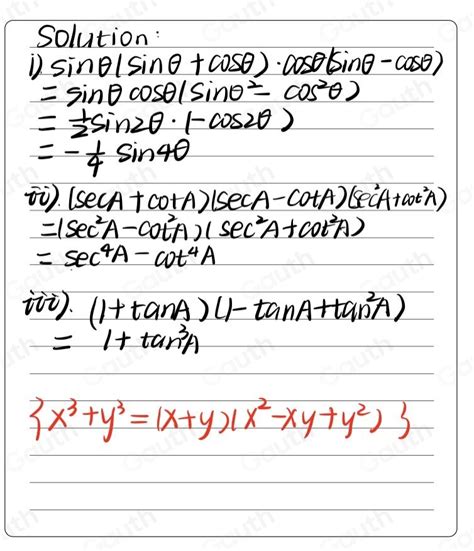 Solution:
i) sinθ(sinθ + cosθ)·cosθ(sinθ - cosθ)
= sinθ cosθ(sinθ² - cos²θ)
= ½sin2θ·(-cos2θ)
= -¼ sin4θ
ii). (secA + cotA)(secA - cotA)(sec²A + cot²A)
= (sec²A - cot²A)(sec²A + cot²A)
= sec⁴A - cot⁴A
iii). (1 + tanA)(1 - tanA + tan²A)
= 1 + tan³A
{x³ + y³ = (x + y)(x² - xy + y²)}